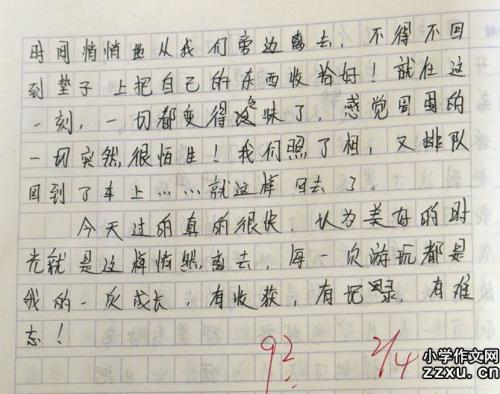 时间悄悄地从我们旁边离去，不得不回
到垫子上把自己的东西收拾好！就在这
一刻，一切都变得没味了，感觉周围的
一切突然很陌生！我们照了相，又排队
回到了车上……就这样回去了。
今天过的真的很快，认为美好的时
光就是这样悄然离去，每一次游玩都是
我的一次成长，有收获，有记录，有难
忘！
92.
2/4
小学作文网
zzxu.cn